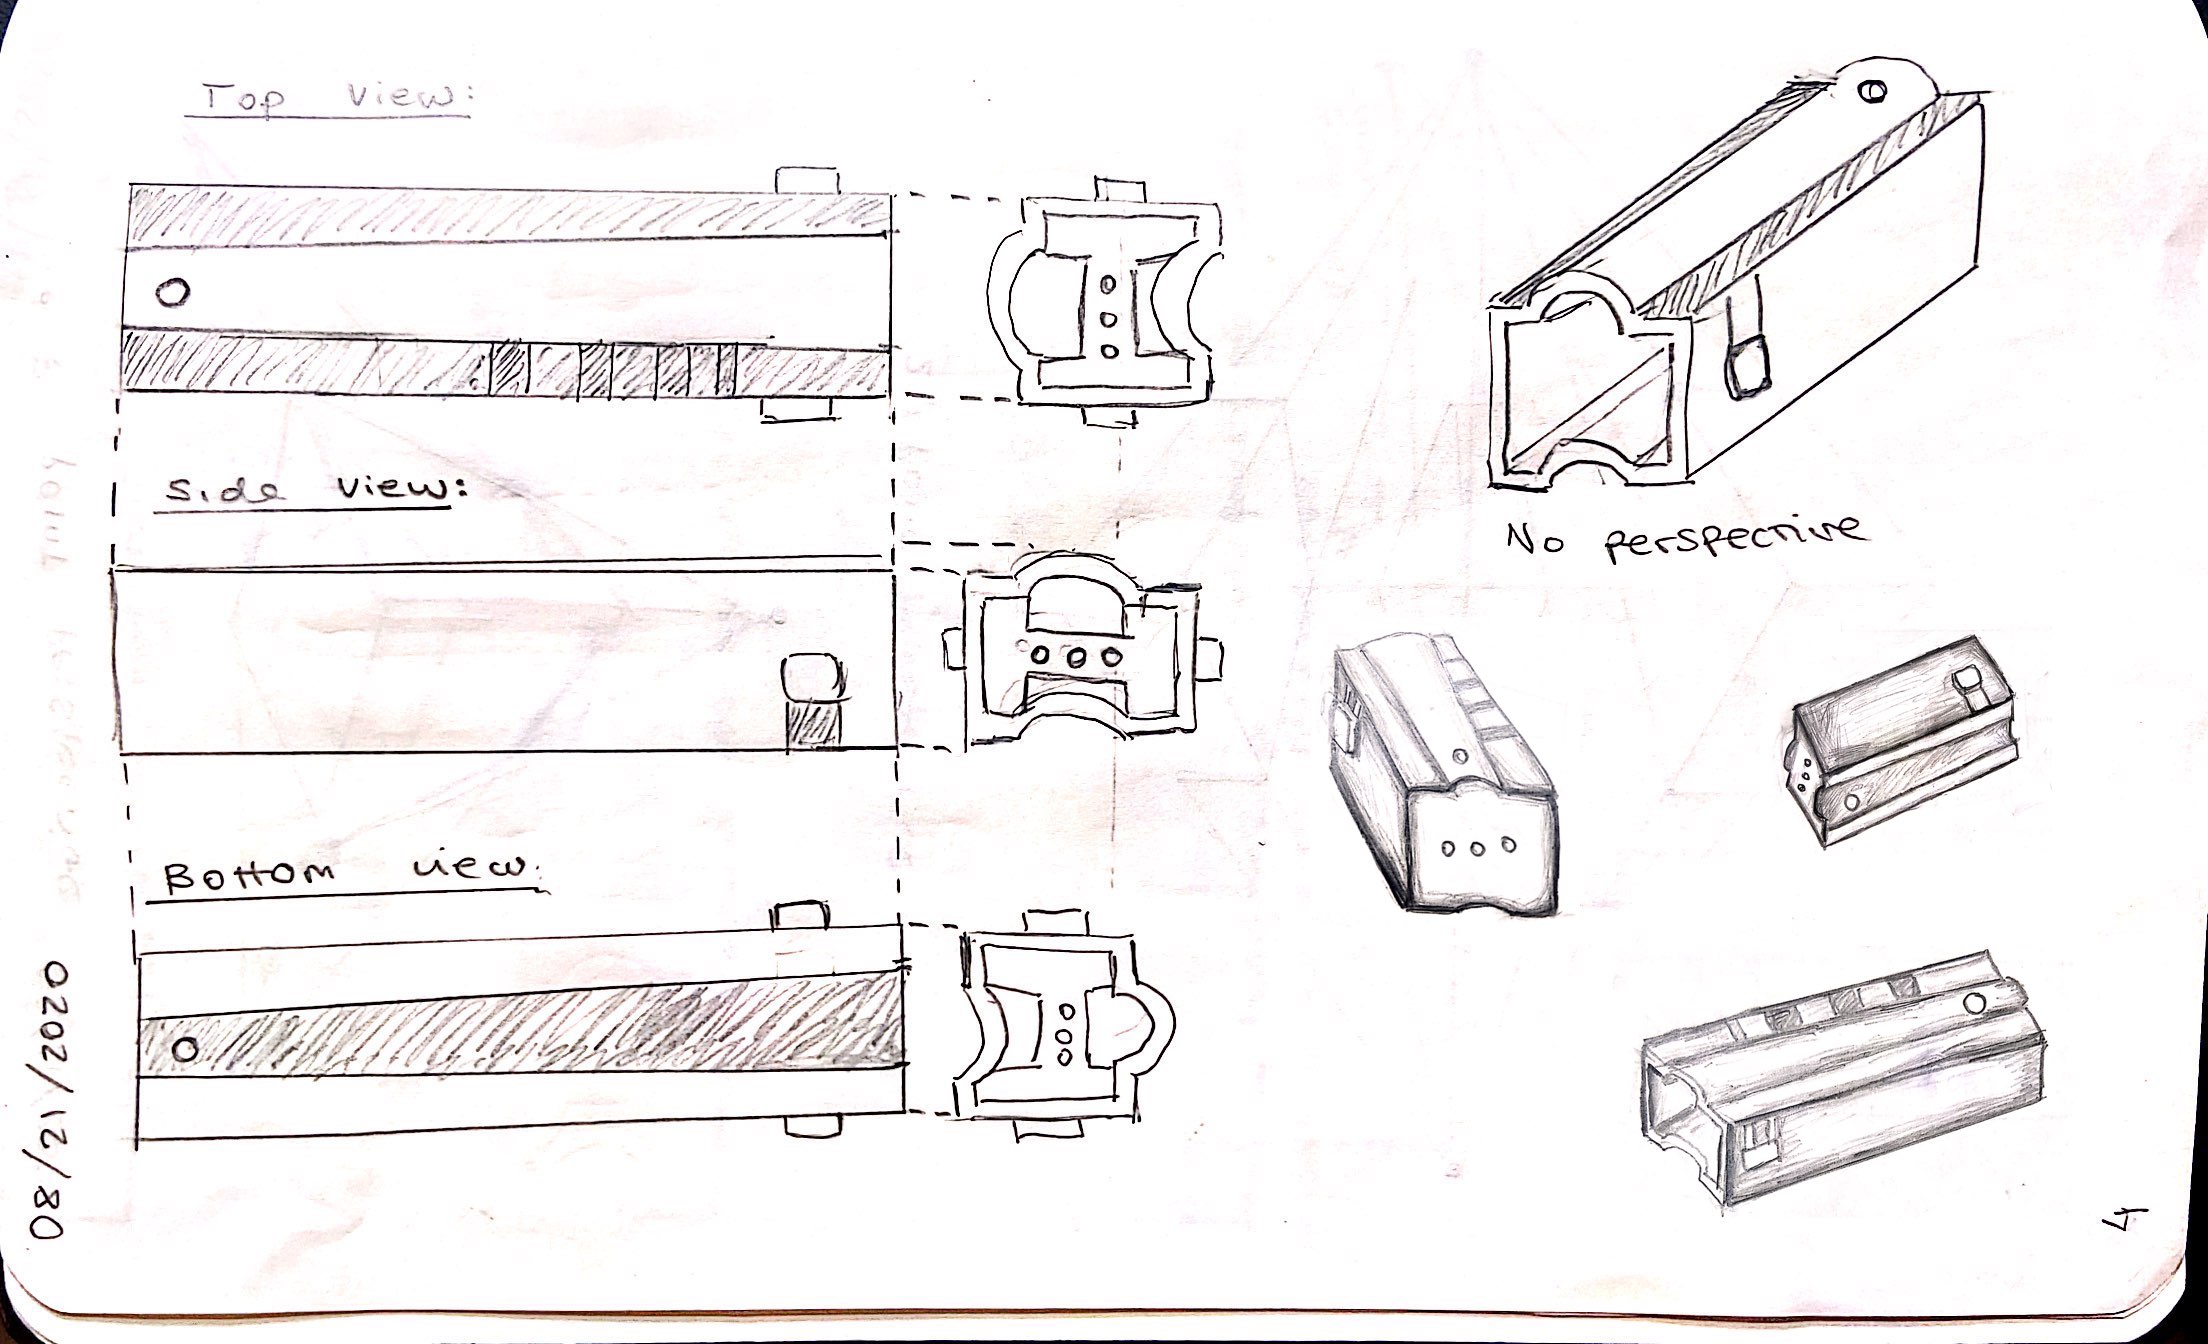 Top View:
Side View:
Bottom view:
No perspective
08/21/2020
4